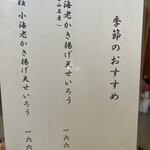 季節のおすすめ
海老かき揚げ天せいろう
小海老かき揚げ天せいろう
一六
一六六